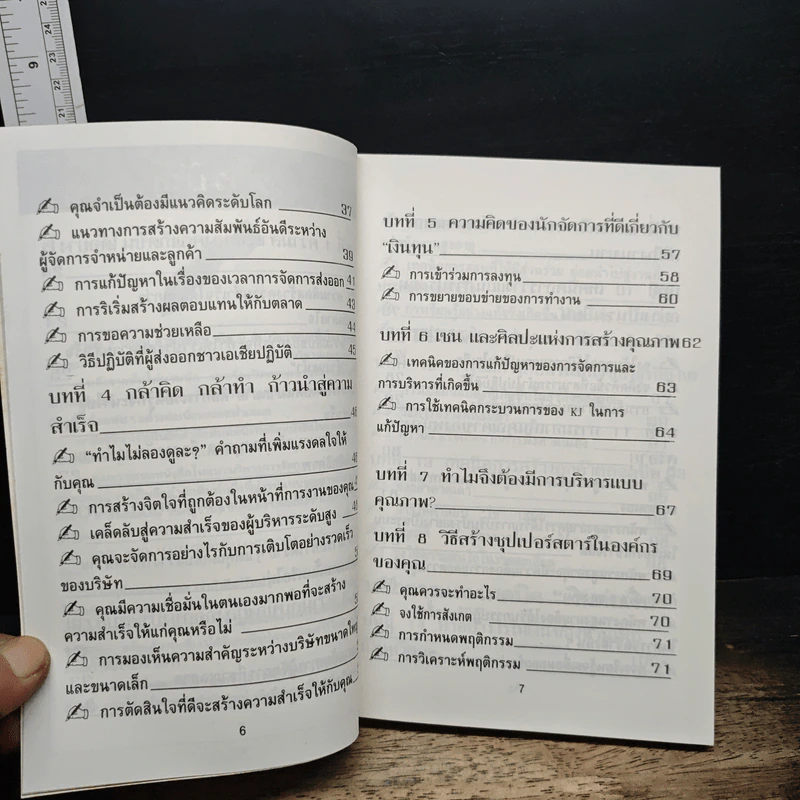 คุณจำเป็นต้องมีแนวคิดระดับโลก 37
แนวทางการสร้างความสัมพันธ์อันดีระหว่าง
ผู้จัดการจำหน่ายและลูกค้า 39
การแก้ปัญหาในเรื่องของเวลาการจัดการส่งออก 41
การริเริ่มสร้างผลตอบแทนให้กับตลาด 43
การขอความช่วยเหลือ 44
วิธีปฏิบัติที่ผู้ส่งออกชาวเอเชียปฏิบัติ 45
บทที่ 4 กล้าคิด กล้าทำ ก้าวนำสู่ความ
สำเร็จ
"ทำไมไม่ลองดูละ?" คำถามที่เพิ่มแรงดลใจให้
กับคุณ
การสร้างจิตใจที่ถูกต้องในหน้าที่การงานของคุณ
เคล็ดลับสู่ความสำเร็จของผู้บริหารระดับสูง
คุณจะจัดการอย่างไรกับการเติบโตอย่างรวดเร็ว
ของบริษัท
คุณมีความเชื่อมั่นในตนเองมากพอที่จะสร้าง
ความสำเร็จให้แก่คุณหรือไม่
การมองเห็นความสำคัญระหว่างบริษัทขนาดใหญ่
และขนาดเล็ก
การตัดสินใจที่ดีจะสร้างความสำเร็จให้กับคุณ
6
บทที่ 5 ความคิดของนักจัดการที่ดีเกี่ยวกับ
"เงินทุน" 57
การเข้าร่วมการลงทุน 58
การขยายขอบข่ายของการทำงาน 60
บทที่ 6 เซน และศิลปะแห่งการสร้างคุณภาพ 62
เทคนิคของการแก้ปัญหาของการจัดการและ
การบริหารที่เกิดขึ้น 63
การใช้เทคนิคกระบวนการของ KJ ในการ
แก้ปัญหา 64
บทที่ 7 ทำไมจึงต้องมีการบริหารแบบ
คุณภาพ? 67
บทที่ 8 วิธีสร้างซุปเปอร์สตาร์ในองค์กร
ของคุณ 69
คุณควรจะทำอะไร 70
จงใช้การสังเกต 70
การกำหนดพฤติกรรม 71
การวิเคราะห์พฤติกรรม 71
7